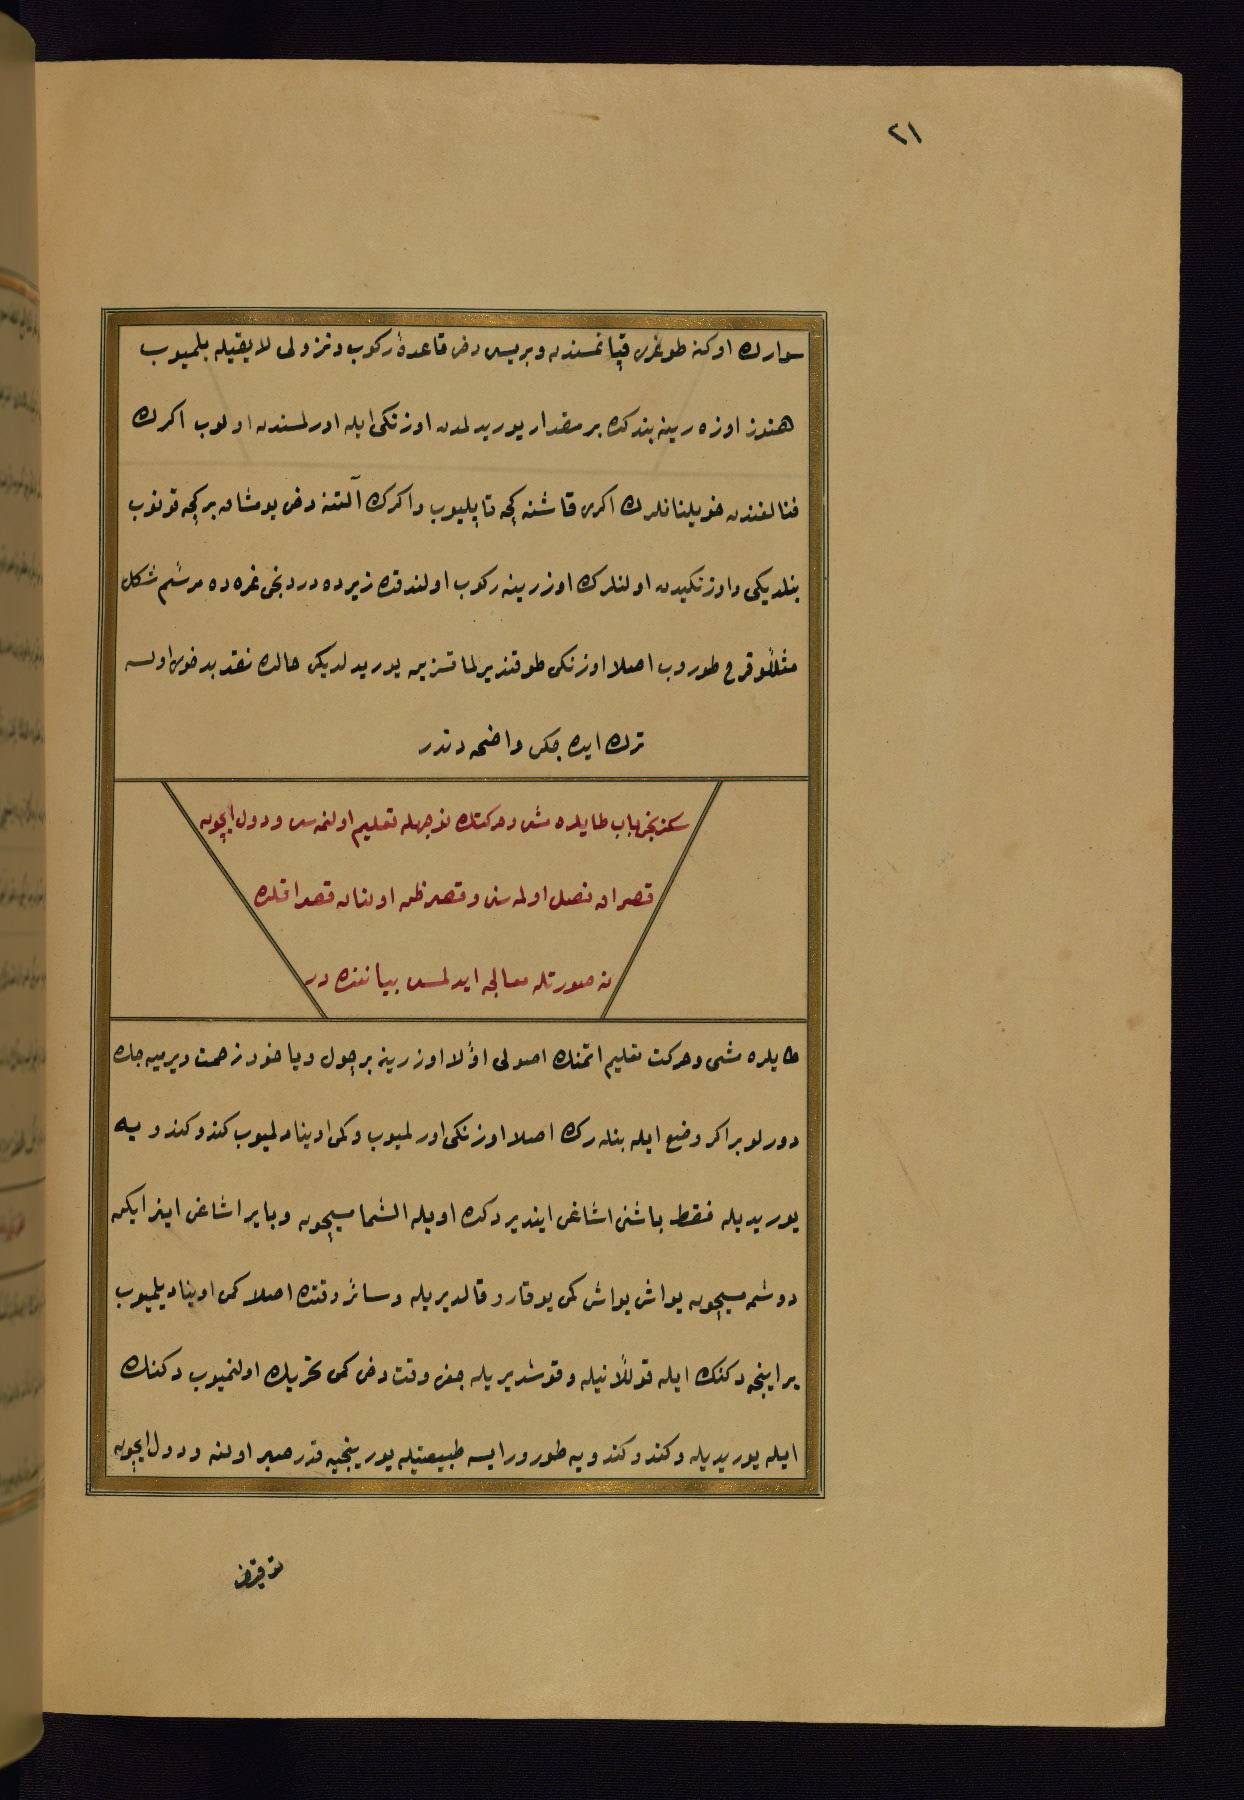 ٢١
سوارك اوكنه طوغرى قپانمسندن و بريسى دخى قاعدهٔ ركوب و نزولى لايقيله بلميوب
هنوز اوزه رينه بندكده بر مقدار يوريدلمدن اوزنكى ايله اورلمسندن اولوب اكرك
فنالغندن خويلنانلرك اكرى قاشنه كچه قاپليوب واكرك آلتنه دخى يومشاق بر كچه قونوب
بنلديكى واوزنكيدن اولنلرك اوزرينه ركوب اولندقده زيرده دردنجى نمره ده مرتسم شكل
مثللو طوروب اصلا اوزنكى طوقنديرلمقسزين يوريدلديكى حالده نقدر بدخوى اولسه
ترك ايده جكى واضحه دندر
سكزنجى باب طايلره مشى وحركتك نه جهله تعليم اولنمه سى ودول ايچون
قصراق نصل اولمه سنى وقصر ظن اولنان قصراقلره
نه صورتله معالجه ايدلمسى بياننده در
طايلره مشى وحركت تعليم اتمنك اصولى اوّلا اوزرينه بر چول ويا خود زحمت ويرميه جك
دورلو بر اكر وضع ايله بنله رك اصلا اوزنكى اورلميوب وكمى اويناد لميوب كندو كندويه
يوريديله فقط باشنى اشاغى اينديردكده اويله الشمامسيچون وباير اشاغى اينر ايكن
دوشمه مسيچون يواش يواش كمى يوقارو قالديريله وسائر وقتده اصلا كمى اويناديلميوب
بر اينجه دكنك ايله قوللانيله وقوشديريله جغى وقت دخى كمى تحريك اولنميوب دكنك
ايله يوريديله وكندو كندويه طورور ايسه طبيعتيله يورينجيه قدر صبر اولنه ودول ايچون